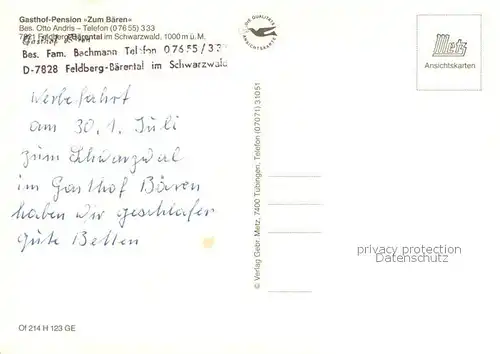 Gasthof-Pension »Zum Bären«
Bes. Otto Andris – Telefon (0 76 55) 3 33
7821 Feldberg-Bärental im Schwarzwald, 1000 m ü. M.
Gasthof Bären
Bes. Fam. Bachmann Telefon 07655/33
D-7828 Feldberg-Bärental im Schwarzwald
DIE QUALITÄTS
ANSICHTSKARTE
Metz
Ansichtskarten
Werbefahrt
am 30. 1. Juli
zum Schwarzwal
im Gasthof Bären
haben wir geschlafen
gute Betten
© Verlag Gebr. Metz, 7400 Tübingen, Telefon (07071) 31051
privacy protection
Datenschutz
Of 214 H 123 GE